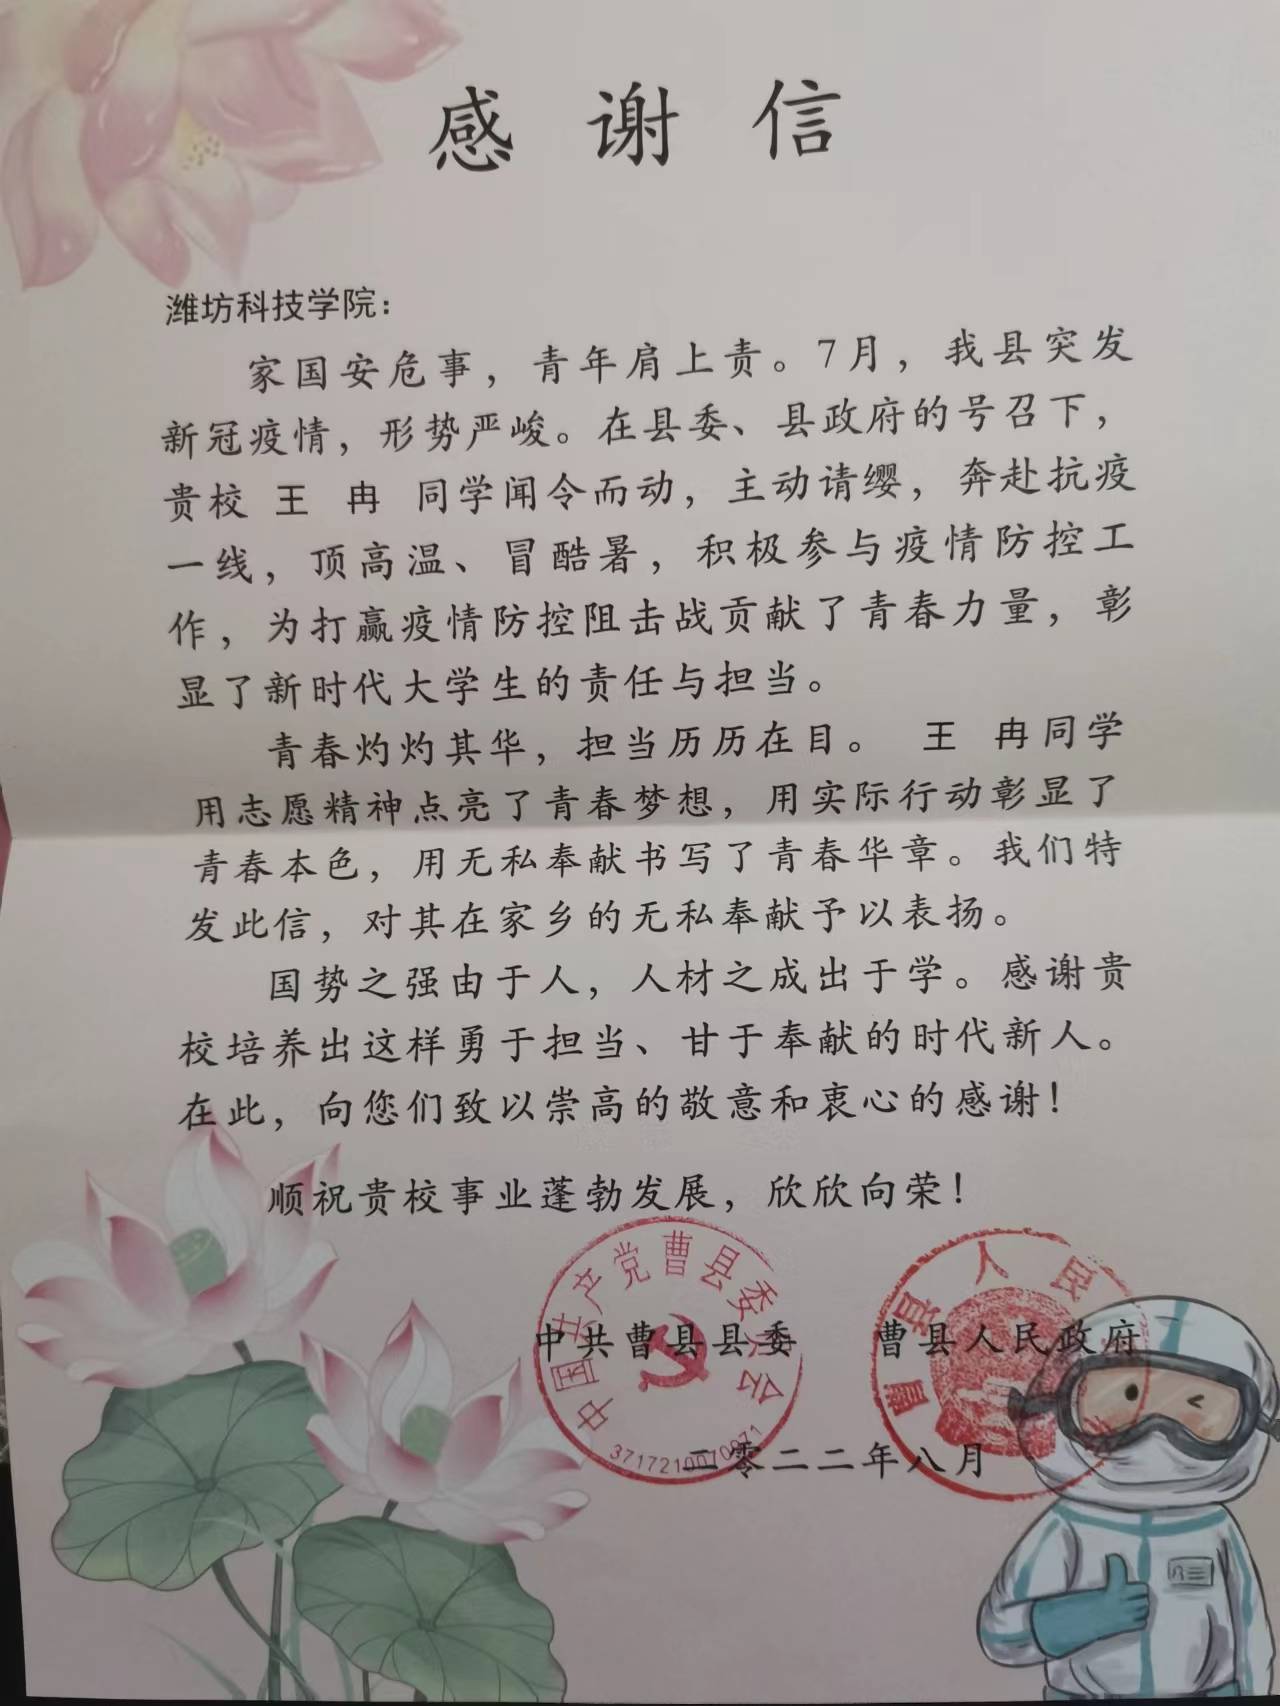 感谢信
潍坊科技学院：
家国安危事，青年肩上责。7月，我县突发
新冠疫情，形势严峻。在县委、县政府的号召下，
贵校 王 冉 同学闻令而动，主动请缨，奔赴抗疫
一线，顶高温、冒酷暑，积极参与疫情防控工
作，为打赢疫情防控阻击战贡献了青春力量，彰
显了新时代大学生的责任与担当。
青春灼灼其华，担当历历在目。 王 冉同学
用志愿精神点亮了青春梦想，用实际行动彰显了
青春本色，用无私奉献书写了青春华章。我们特
发此信，对其在家乡的无私奉献予以表扬。
国势之强由于人，人材之成出于学。感谢贵
校培养出这样勇于担当、甘于奉献的时代新人。
在此，向您们致以崇高的敬意和衷心的感谢！
顺祝贵校事业蓬勃发展，欣欣向荣！
中国共产党曹县委员会
中共曹县县委 曹县人民政府
曹县人民
二零二二年八月